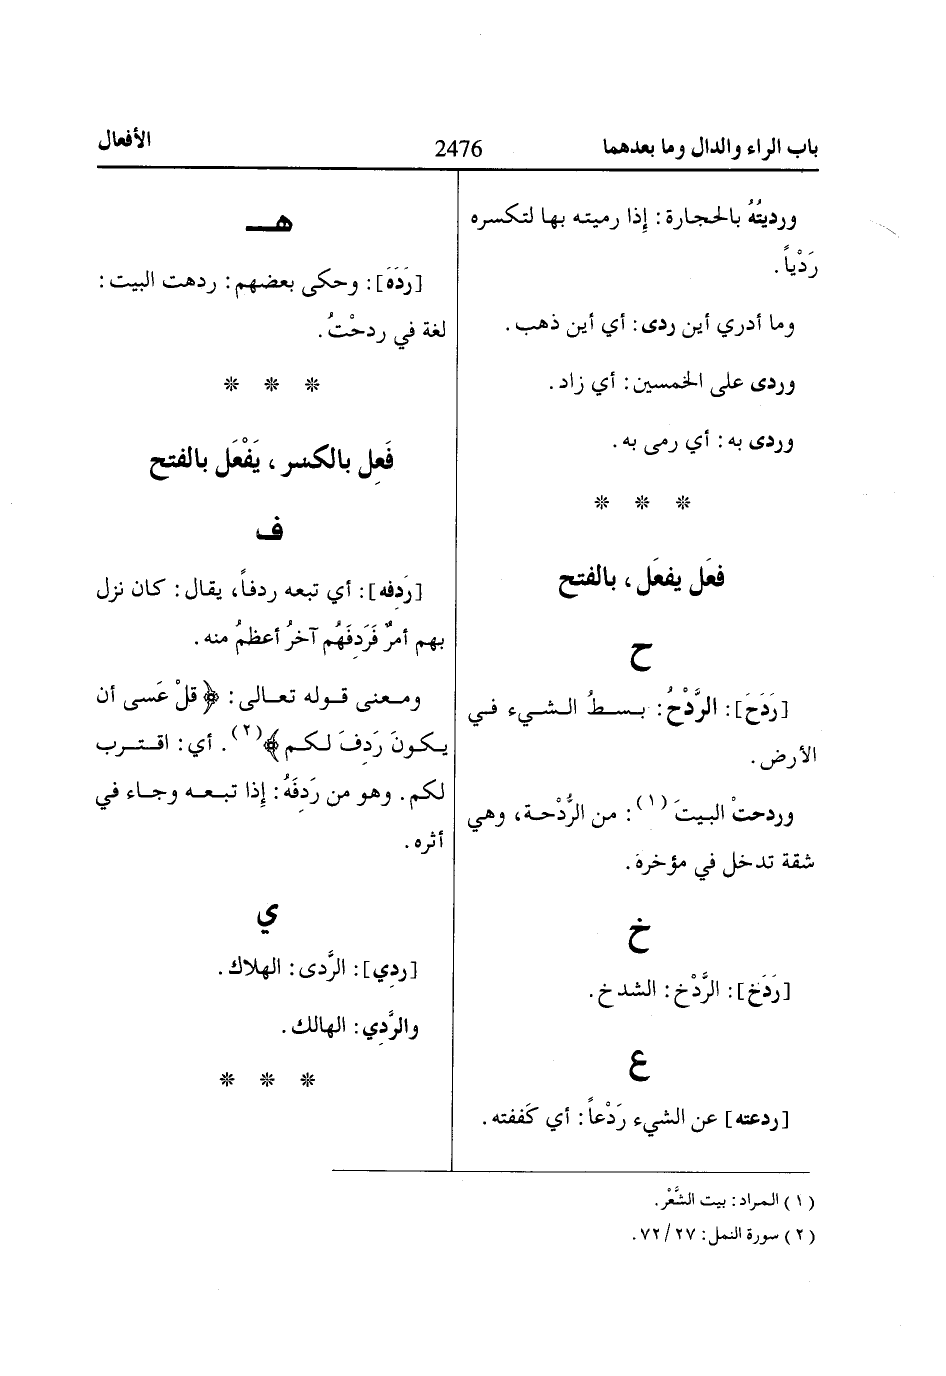 باب الراء والدال وما بعدهما
2476
الأفعال
ورديتُهُ بالحجارة: إذا رميته بها لتكسره
رَدْياً.
وما أدري أين ردى: أي أين ذهب.
وردى على الخمسين: أي زاد.
وردى به: أي رمى به.
* * *
فعَل يفعَل، بالفتح
ح
[رَدَحَ]: الرَّدْحُ: بسطُ الشيء في
الأرض.
وردحتْ البيتَ (١): من الرُّدْحة، وهي
شقة تدخل في مؤخرهَ.
خ
[رَدَخ]: الرَّدْخ: الشدخ.
ع
[ردعته] عن الشيء رَدْعاً: أي كَففته.
هـ
[رَدَهَ]: وحكى بعضهم: ردهت البيت:
لغة في ردحْتُ.
* * *
فَعِل بالكسر، يَفْعَل بالفتح
ف
[رَدِفه]: أي تبعه ردفاً، يقال: كان نزل
بهم أمرٌ فَرَدِفَهُم آخرُ أعظمُ منه.
ومعنى قوله تعالى: ﴿قلْ عَسى أن
يكونَ رَدِفَ لكم﴾(٢). أي: اقترب
لكم. وهو من رَدِفَهُ: إذا تبعه وجاء في
أثره.
ي
[ردِي]: الرَّدى: الهلاك.
والرَّدِي: الهالك.
* * *
(١) المراد: بيت الشَّعْر.
(٢) سورة النمل: ٢٧/ ٧٢.